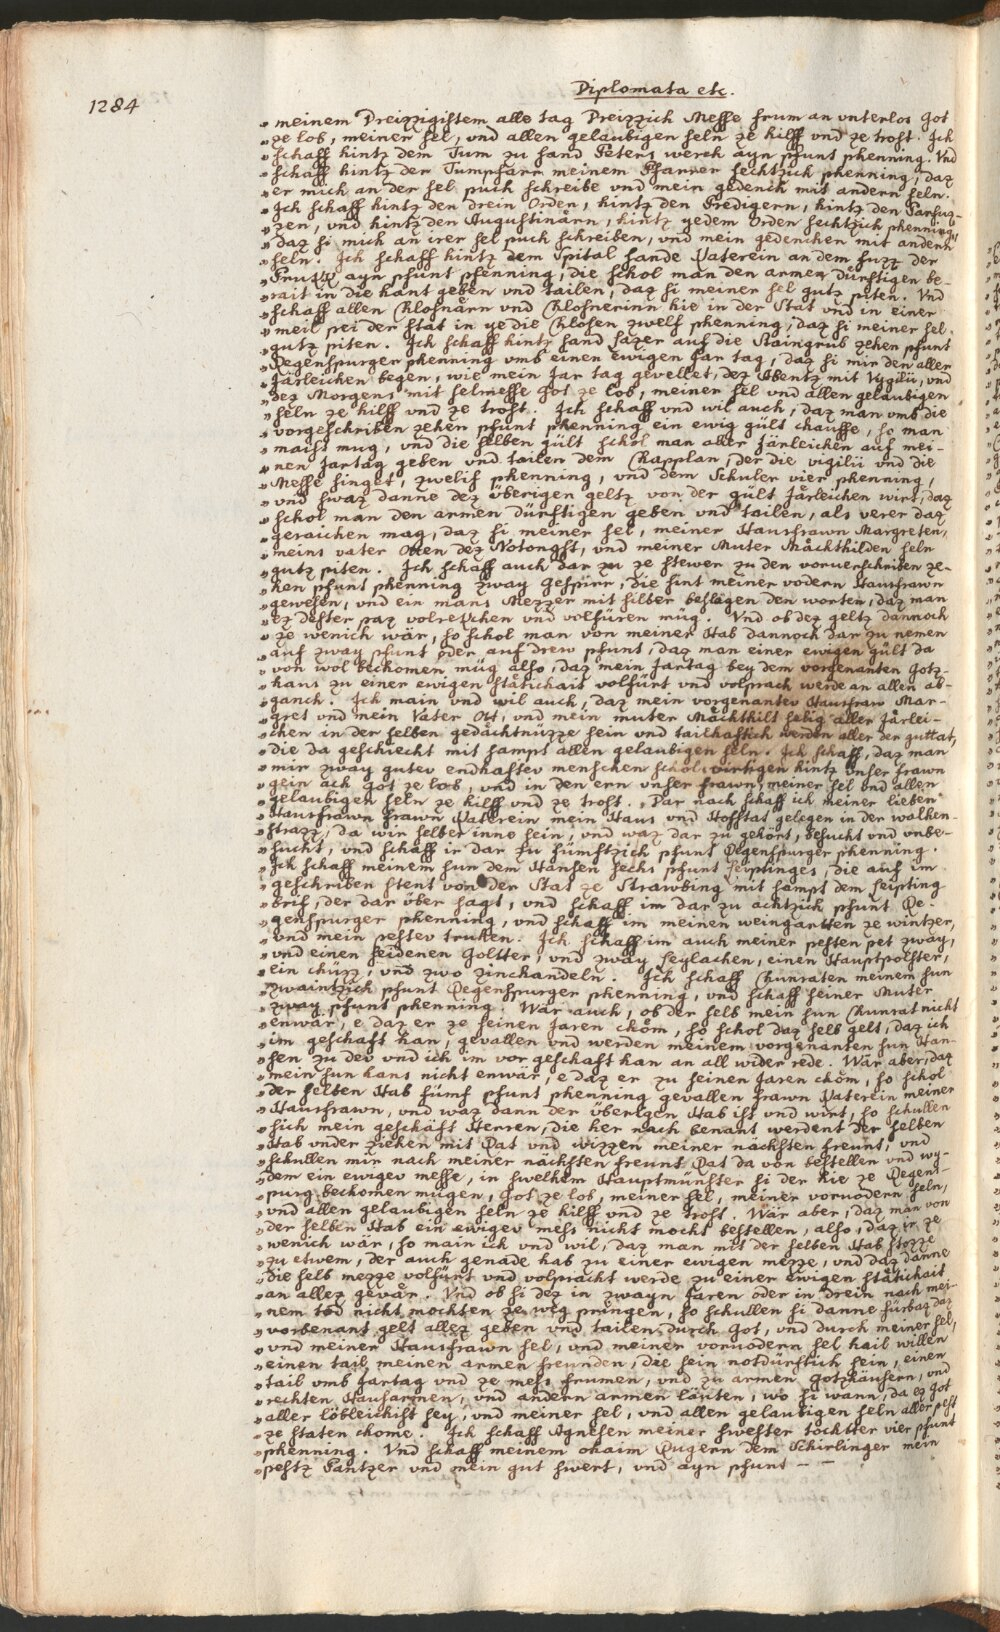 Diplomata etc.
1284
„ meinem Dreizzigistem alle tag Dreizzich Messe frum an unterlos Got
„ ze lob, meiner sel, und allen gelaubigen seln ze hilff und ze trost. Ich
„ schaff hintz dem Tum zu sand Peters werch ayn pfunt phenning. Und
„ schaff hintz der Tumpfarr meinem Pfarrer sechtzich phenning, daz
„ er mich an der sel puch schreibe und mein gedench mit andern seln.
„ Ich schaff hintz den drein Orden, hintz den Predigern, hintz den Parfuz-
„ zen, und hintz den Augustinärn, hintz yedem Orden sechtzich phenning,
„ daz si mich an irer sel puch schreiben, und mein gedenchen mit andern
„ seln. Ich schaff hintz dem Spital sande Katerein an dem fuzz der
„ Prukk ayn pfunt pfenning, die schol man den armen dürftigen be-
„ rait in die hant geben und tailen, daz si meiner sel gutz piten. Und
„ schaff allen Chlosnärn und Chlosnerinn hie in der Stat und in einer
„ meil pei der stat in ye die Chlosen zwelf phenning, daz si meiner sel
„ gutz piten. Ich schaff hintz sand Jazer auf die Staingrub zehen pfunt
„ Regenspurger phenning umb einen ewigen Jar tag, daz si mir den aller
„ Järleichen begen, wie mein Jar tag gevellet, dez Abentz mit Vygilii, und
„ dez Morgens mit selmesse Got ze lob, meiner sel und allen gelaubigen
„ seln ze hilff und ze trost. Ich schaff und wil auch, daz man umb die
„ vorgeschriben zehen pfunt phenning ein ewig gült chauffe, so man
„ maist mug, und die selben gült schol man aller Järleichen auf mei-
„ nen Jartag geben und tailen dem Chapplan, der die vigilii und die
„ Messe singet, zwelif phenning, und dem Schuler vier phenning,
„ und swaz danne dez überigen geltz von der gült Järleichen wirt, daz
„ schol man den armen dürftigen geben und tailen, als verer daz
„ geraichen mag, daz si meiner sel, meiner Hausfrawn Margreten,
„ meins vater Otten dez Notongst, und meiner Muter Mächthilden seln
„ gutz piten. Ich schaff auch dar zu ze stewer zu den vorverschriben ze-
„ hen pfunt phenning zway Gespirr, die sint meiner vodern Hausfrawn
„ gewesen, und ein mans Mezzer mit silber beslagen den worten, daz man
„ ez dester paz volrekchen und volfüren müg. Und ob dez geltz dannoch
„ ze wenich wär, so schol man von meiner Hab dannoch dar zu nemen
„ auf zway pfunt oder auf drew pfunt, daz man einer ewigen gült da
„ von wol bechomen müg also, daz mein Jartag bey dem vorgenanten Gotz-
„ haus zu einer ewigen stätichait volfürt und volpracht werde an allen ab-
„ ganch. Ich main und wil auch, daz mein vorgenantev Hausfraw Mar-
„ gret und mein Vater Ott, und mein muter Mächthilt selig aller Järlei-
„ chen in der selben gedächtnüzze sein und tailhaftich werden aller der guttat,
„ die da geschiecht mit sampt allen gelaubigen seln. Ich schaff, daz man
„ mir zway gutev endhaftev menschen schol virtigen hintz unser frawn
„ gein ach Got ze lob, und in den ern unser frawn, meiner sel und allen
„ gelaubigen seln ze hilff und ze trost. Dar nach schaff ich meiner lieben
„ Hausfrawn frawn Katerein mein Haus und Hofstat gelegen in der walhen-
„ strazz, da wir selber inne sein, und waz dar zu gehört, besucht und unbe-
„ sucht, und schaff ir dar zu fümftzich pfunt Regenspurger phenning.
„ Ich schaff meinem sun dem Hansen sechs pfunt Leiptinges, die auf im
„ geschriben stent von der Stat ze Strawbing mit sampt dem Leipting
„ brif, der dar über sagt, und schaff im dar zu achtzich pfunt Re-
„ genspurger phenning, und schaff im meinen weingartten ze wintzer,
„ und mein pestev truhen. Ich schaff im auch meiner pesten pet zway,
„ und einen seidenen Goltter, und zway Leylachen, einen Hauptpolster,
„ ein chüzz, und zwo zinchandeln. Ich schaff Chunraten meinem sun
„ zwaintzich pfunt Regenspurger phenning, und schaff seiner Muter
„ zway pfunt phenning. Wär auch, ob der selb mein sun Chunrat nicht
„ enwär, e daz er ze seinen Jaren chöm, so schol daz selb gelt, daz ich
„ im geschaft han, gevallen und werden meinem vorgenanten sun Han-
„ sen zu dev und ich im vor geschaft han an all wider rede. Wär aber, daz
„ mein sun hans nicht enwär, e daz er zu seinen Jaren chöm, so schol
„ der selben Hab fümf pfunt phenning gevallen frawn Katerein meiner
„ Hausfrawn, und waz dann der überigen Hab ist und wirt, so schullen
„ sich mein geschäft Herren, die her nach benant werdent der selben
„ Hab under ziehen mit Rat und wizzen meiner nächsten freunt, und
„ schullen mir nach meiner nächsten freunt Rat da von bestellen und wy-
„ dem ein ewigev messe, in swelhem Hauptmünster si der hie ze Regens-
„ purg bechomen mügen, Got ze lob, meiner sel, meiner vorvodern seln,
„ und allen gelaubigen seln ze hilff und ze trost. Wär aber, daz man von
„ der selben Hab ein ewigev mess nicht mocht bestellen, also, daz ir ze
„ wenich wär, so main ich und wil, daz man mit der selben Hab stozze
„ zu etwem, der auch genade hab zu einer ewigen mezze, und daz danne
„ die selb mezze volfürt und volpracht werde zu einer ewigen stätichait
„ an allez gevär. Und ob si dez in zwayn Jaren oder in drein nach mei-
„ nem tod nicht mochten ze weg pringen, so schullen si danne fürbaz daz
„ vorbenant gelt allez geben und tailen durch Got, und durch meiner sel,
„ und meiner Hausfrawn sel, und meiner vorvodern sel hail willen
„ einen tail meinen armen freunden, die sein notdurftich sein, einen
„ tail umb Jartag und ze mess frumen, und zu armen Gotzhäusern, und
„ rechten Hausarmen, und andern armen läuten, wo si wann, da ez Got
„ aller löbleichist sey, und meiner sel, und allen gelaubigen seln aller pest
„ ze staten chome. Ich schaff Agnesen meiner swester töchtter vier pfunt
„ phenning. Und schaff meinem ohaim Rugern dem Schirlinger mein
„ pestz Pantzer und mein gut swert, und ayn pfunt – –